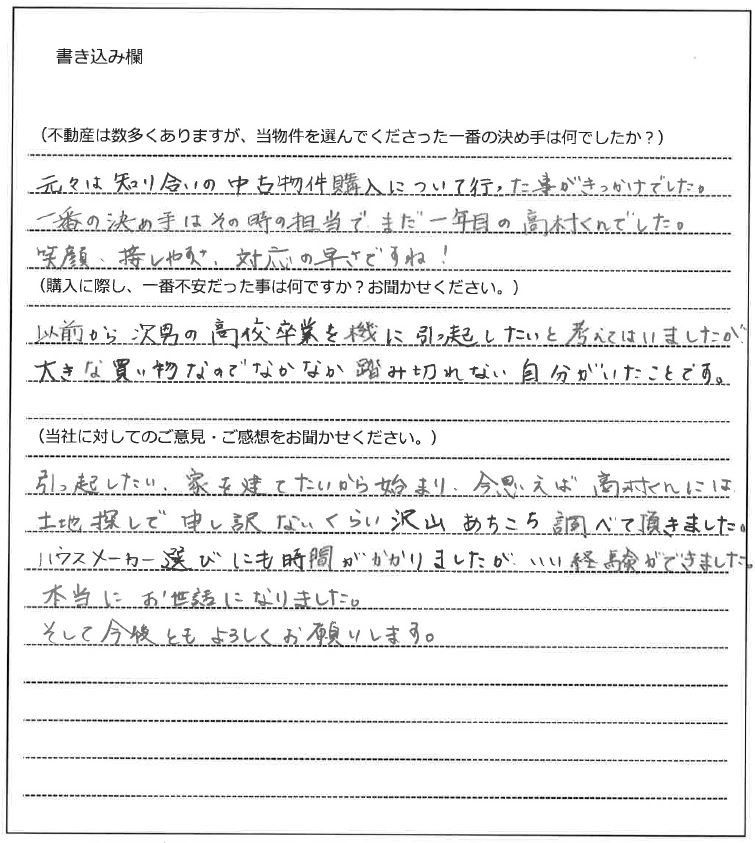 書き込み欄
（不動産は数多くありますが、当物件を選んでくださった一番の決め手は何でしたか？）
元々は知り合いの中古物件購入について行った事がきっかけでした。
一番の決め手はその時の担当で、まだ一年目の高村くんでした。
笑顔、接しやすさ、対応の早さですね！
（購入に際し、一番不安だった事は何ですか？お聞かせください。）
以前から次男の高校卒業を機に引っ起ししたいと考えてはいましたが
大きな買い物なのでなかなか踏み切れない自分がいたことです。
（当社に対してのご意見・ご感想をお聞かせください。）
引っ起ししたい、家を建てたいから始まり、今思えば高村くんには
土地探しで申し訳ないくらい沢山あちこち調べて頂きました。
ハウスメーカー選びにも時間がかかりましたが、いい経験ができました。
本当にお世話になりました。
そして今後ともよろしくお願いします。